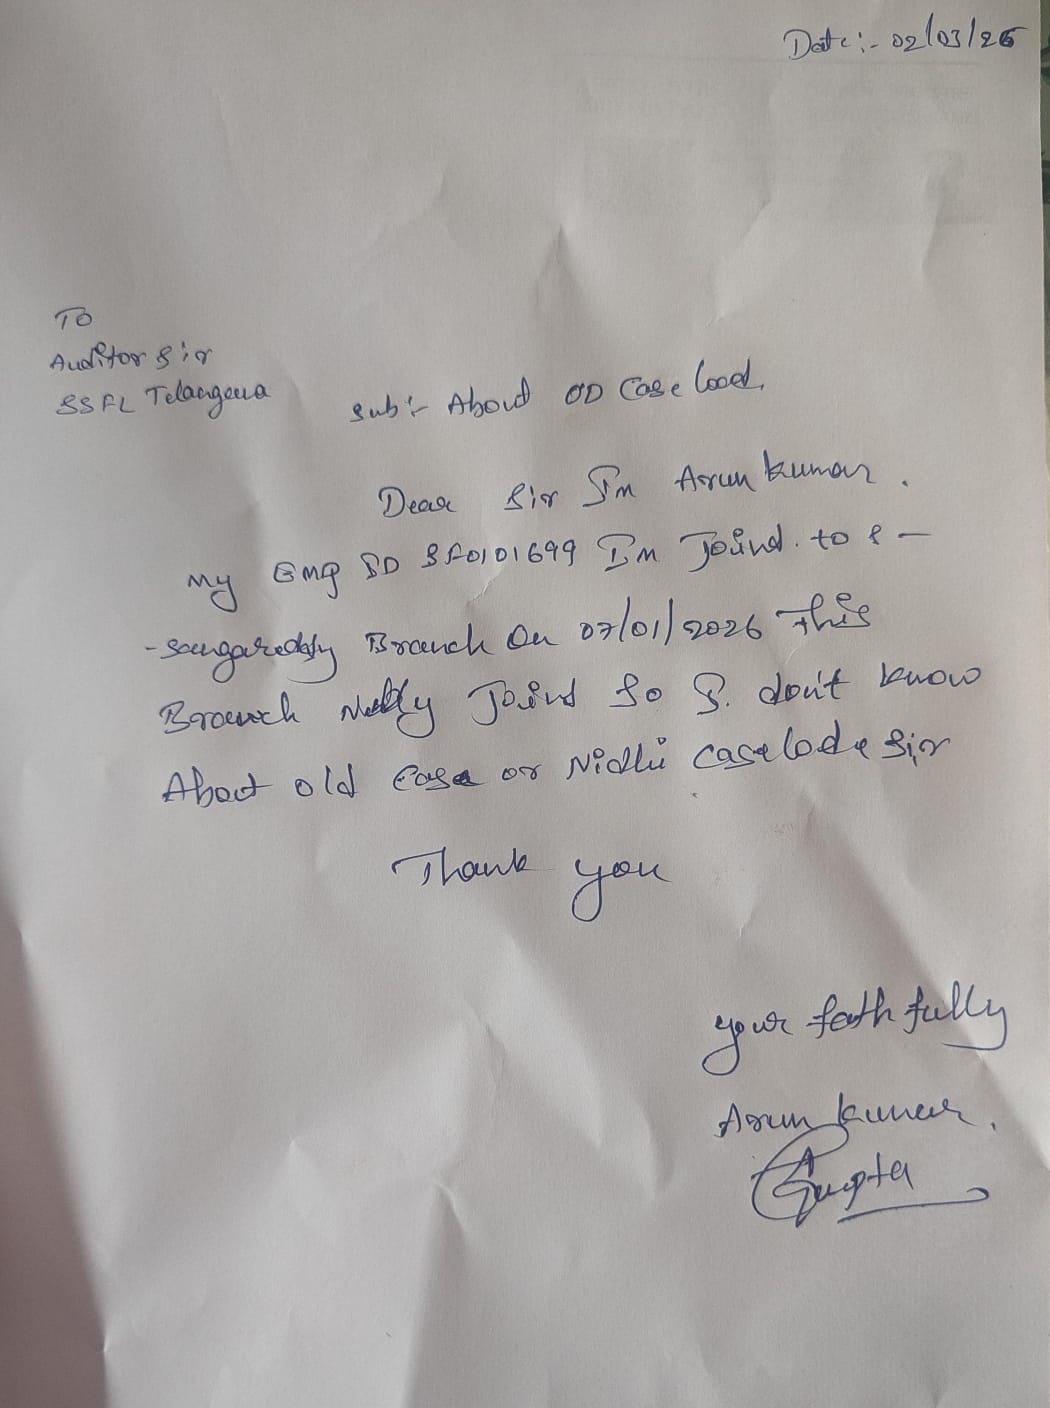 Date:- 02/03/26
To
Auditor Sir
SSFL Telangana
Sub:- About OD Case load.
Dear Sir I'm Arun kumar.
My Emp ID SF0101699 I'm Joind. to S-
-sangareddy Branch On 07/01/2026 This
Branch Joind So I. don't know
About old Case or Nidhi caselode Sir
Thank you
your fathfully
Arun kumar.
Gupta